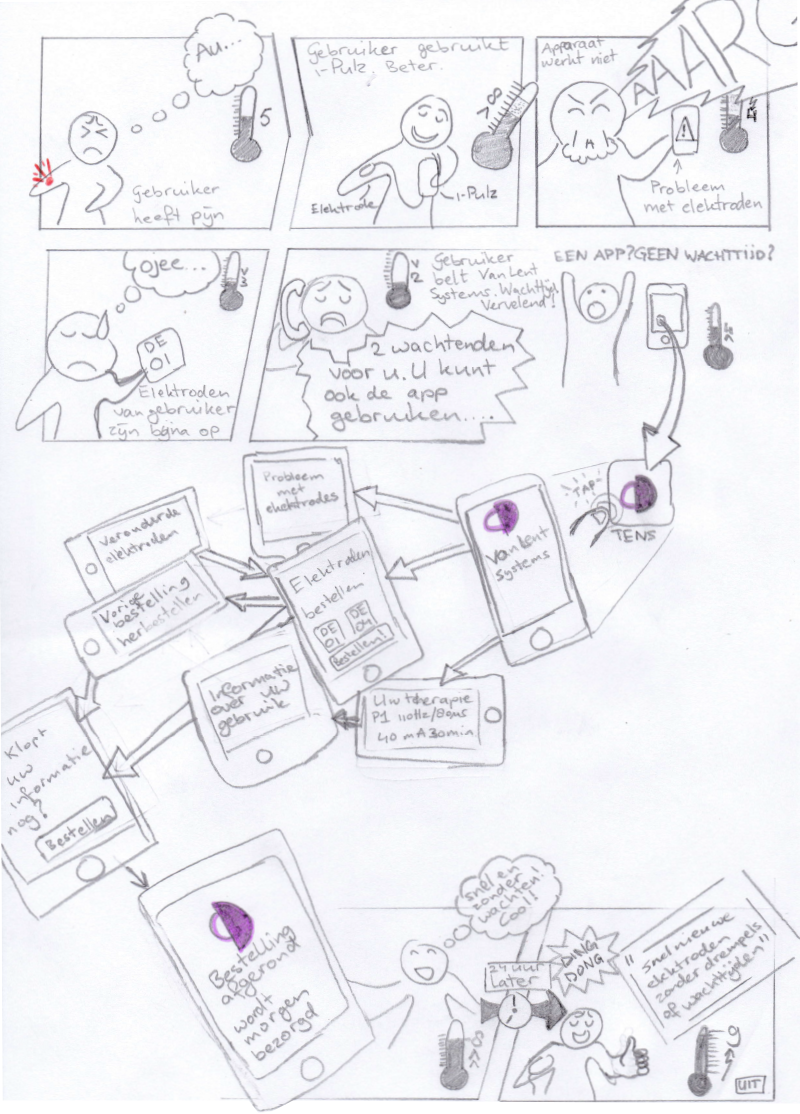 Au...
5
Gebruiker
heeft pijn
Gebruiker gebruikt
i-Pulz. Beter.
>8
Elektrode
i-Pulz
Apparaat
werkt niet
AAARG
Probleem
met elektroden
Ojee...
DE
01
Elektroden
van gebruiker
zijn bijna op
Gebruiker
belt Van Lent
Systems. Wachttijd.
Vervelend!
2 wachtenden
voor u. U kunt
ook de app
gebruiken....
EEN APP? GEEN WACHTTIJD?
TAP
TENS
VanLent
systems
Probleem
met
elektrodes
Veranderde
elektroden
Vorige
bestelling
herbestellen
Elektroden
bestellen
DE
01
DE
04
Bestellen!
Informatie
over uw
gebruik
Uw therapie
P1 110Hz/80µs
40 mA 30min
Klopt
uw
informatie
nog?
Bestellen
Bestelling
afgerond
wordt
morgen
bezorgd
snel en
zonder
wachten!
Cool!
24 uur
Later
DING
DONG
"snel nieuwe
elektroden
zonder drempels
of wachttijden"
UIT